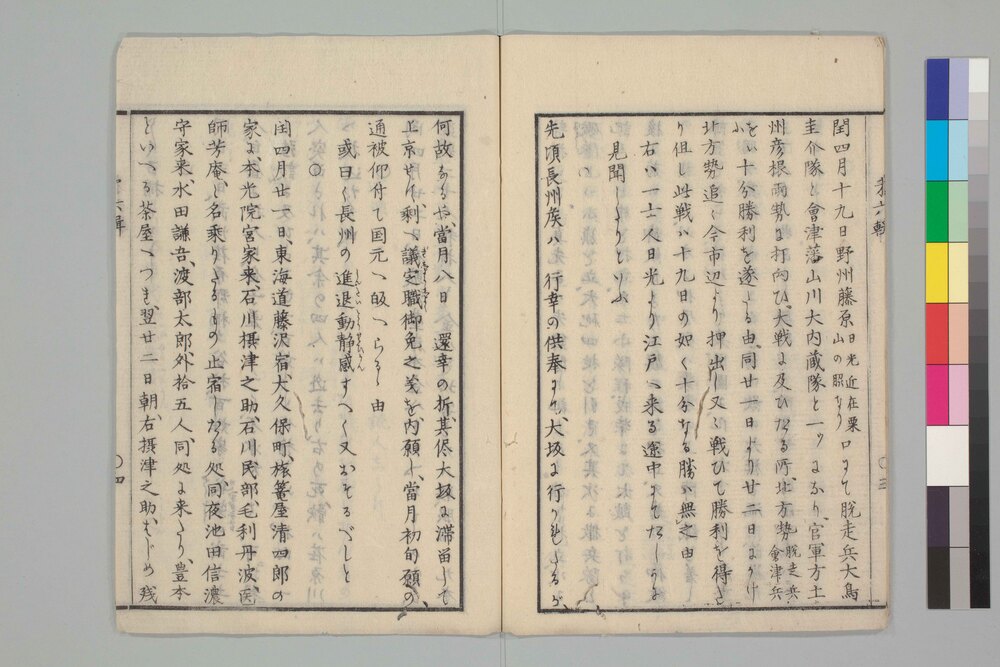 閏四月十九日野州藤原日光近在粟口山の照なりまて脱走兵大鳥
圭介隊と會津藩山川大内蔵隊と一ツになり官軍方土
州彦根両勢に打向ひ大戦に及ひたる所北方勢脱走兵會津兵
をい十分勝利を遂たる由同廿一日より廿二日にかけ
北方勢追々今市辺より押出し又々戦ひて勝利を得
り但し此戦ハ十九日の如く十分なる勝ハ無之由
右ハ一士人日光より江戸へ来る途中にてたしかに
見聞したりといふ
先頃長州矦ハ行幸の供奉にて大坂に行かれたるが
何故なるや當月八日還幸の折其侭大坂に滞留して
上京せす剰へ議定職御免之義を内願し當月初旬願の
通被仰付て国元へ皈へらるゝ由
或曰く長州の進退動静感すへく又おそるべしと
〇
閏四月廿一日東海道藤沢宿大久保町旅篭屋清四郎の
家に本光院宮家来石川摂津之助石川民部毛利丹波医
師芳庵と名乗りたるもの止宿したる処同夜池田信濃
守家来水田謙吾渡部太郎外拾五人同処に来たり豊本
といへる茶屋へつき翌廿二日朝右摂津之助はじめ残